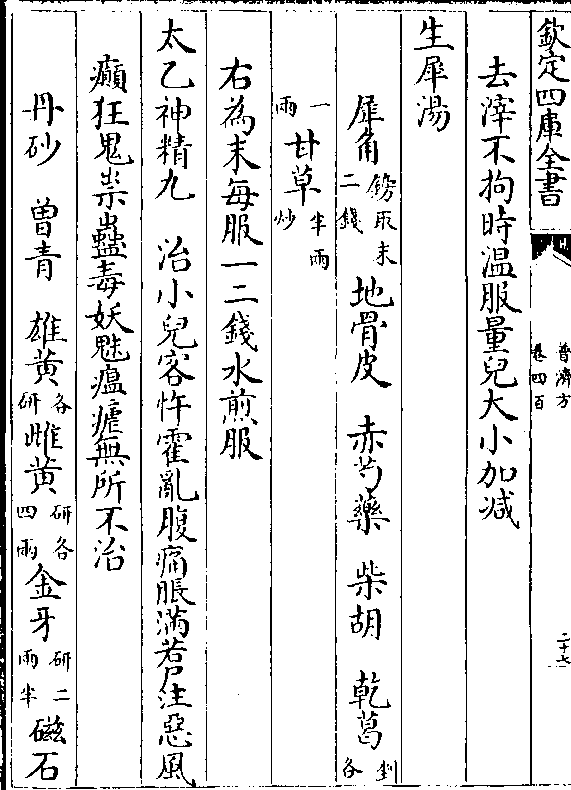 欽定四庫全書
普濟方
卷四百
二十七
去滓不拘時温服量兒大小加减
生犀湯
犀角鎊取末二錢 地骨皮 赤芍藥 柴胡 乾葛剉各
一兩 甘草半兩炒
右為末每服一二錢水煎服
太乙神精丸 治小兒客忤霍亂腹痛脹滿若尸注惡風
癲狂鬼祟蠱毒妖魅瘟瘧無所不治
丹砂 曽青 雄黄各研 雌黄研各四兩 金牙研二兩半 磁石